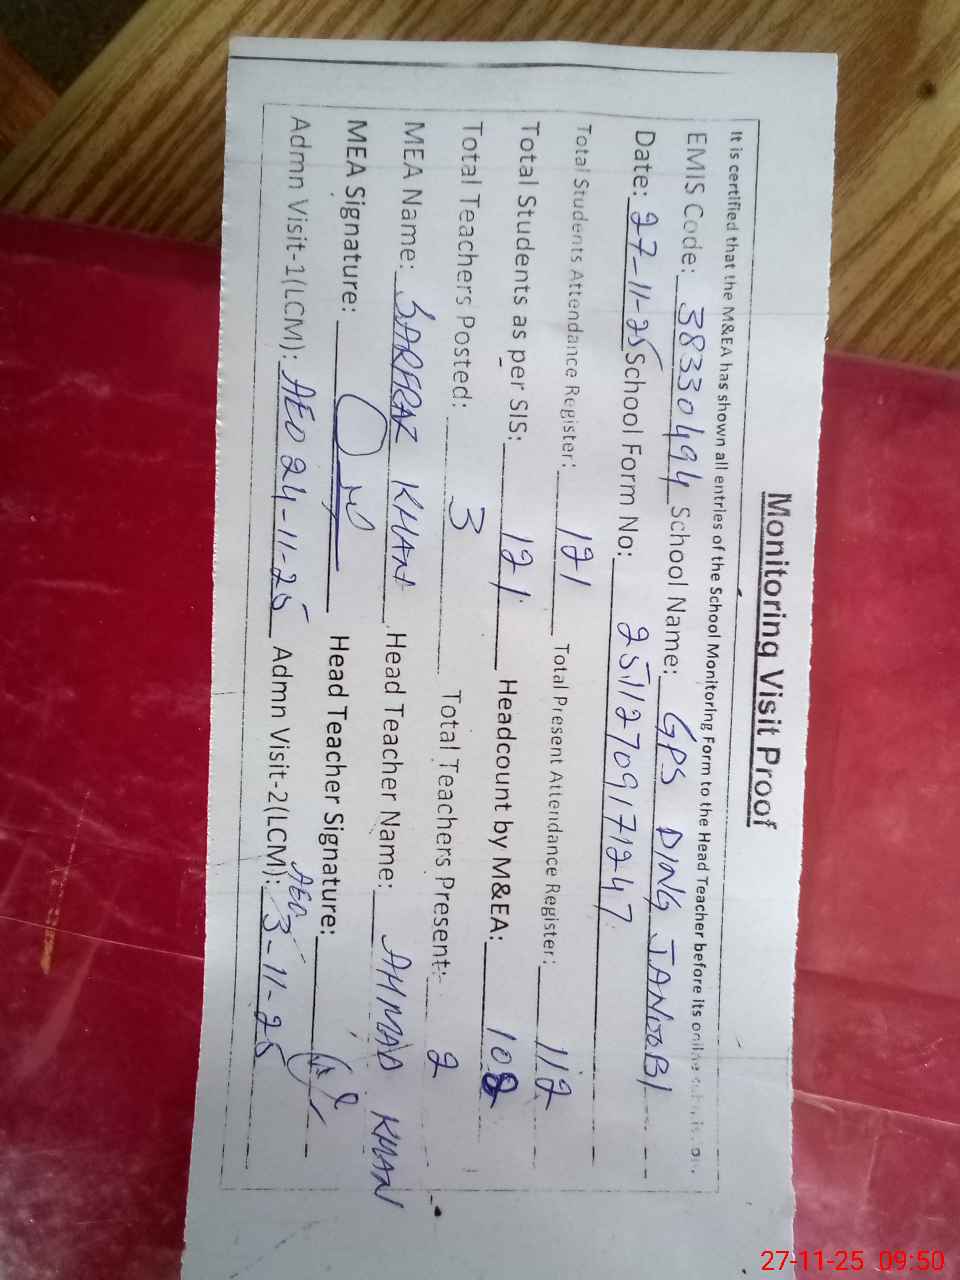 Monitoring Visit Proof
It is certified that the M&EA has shown all entries of the School Monitoring Form to the Head Teacher before its online
EMIS Code: 38330494 School Name: GPS DING JANOOBI
Date: 27-11-25 School Form No: 25112709171247
Total Students Attendance Register: 121 Total Present Attendance Register: 112
Total Students as per SIS: 121 Headcount by M&EA: 108
Total Teachers Posted: 3 Total Teachers Present: 2
MEA Name: SARFRAZ KHAN Head Teacher Name: AHMAD KHAN
MEA Signature: Head Teacher Signature:
Admn Visit-1(LCM): AEO 24-11-25 Admn Visit-2(LCM): AEO 3-11-25
27-11-25 09:50